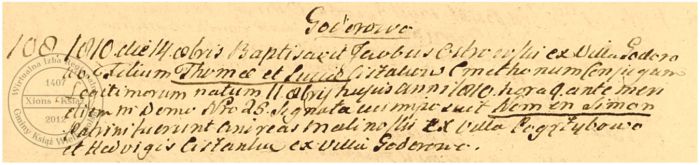 Goderowo
108. 1810. die 14 æbris Baptisavit Jacobus Ostrowski ex Villa Godoro
wo Filium Thomæ et Luciæ Cistaków Cmethonum Conjugum
Legitimorum natum 11 æbris hujus anni 1810. hora 9 ante meri
diem in Domo Nro 25. Signata cui imposuit Nomen Simon
Patrini fuerunt Andreas Malinoski ex Villa Pogrzybowo
et Hedvigis Cistanka ex Villa Goderowo.
Wirtualna Izba Regionalna
1407
Xions - Książ
2012
Gminy Książ Wlkp.